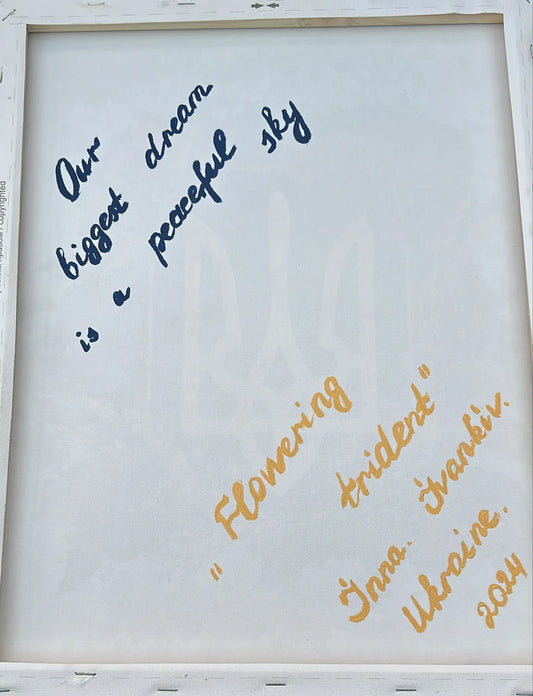 Our
biggest dream
is a peaceful sky
„Flowering
trident"
Inna. Ivankiv.
Ukraine.
2024
Copyrighted